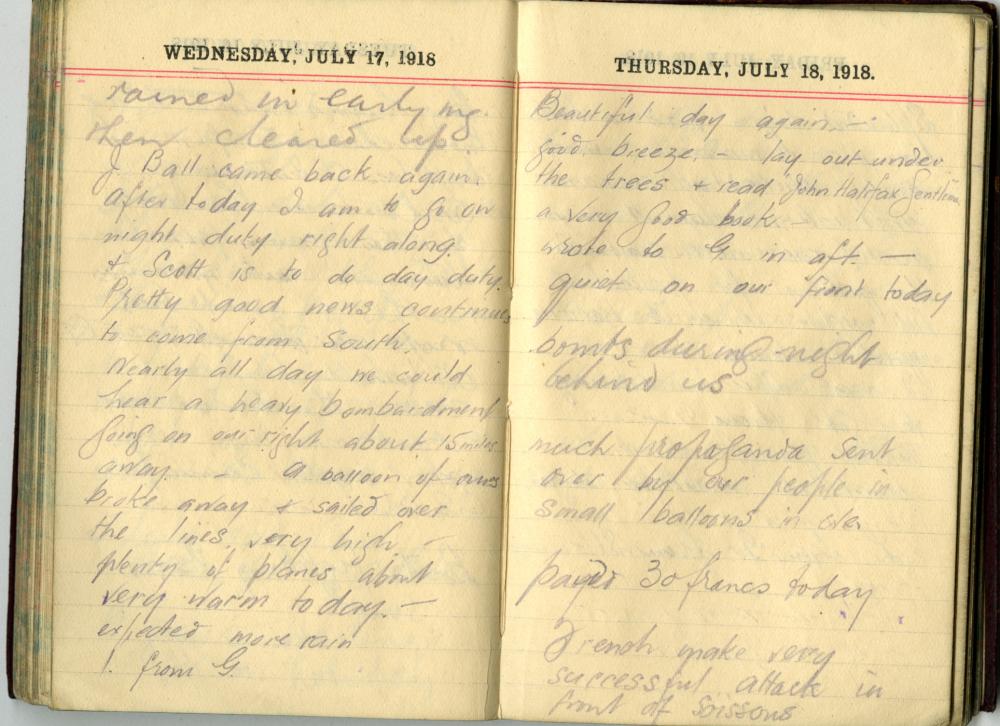 WEDNESDAY, JULY 17, 1918
rained in early mg.
then cleared up.
J Ball came back again.
after today I am to go on
night duty right along.
& Scott is to do day duty.
Pretty good news continues
to come from South.
Nearly all day we could
hear a heavy bombardment
going on our right about 15 miles
away. - A balloon of ours
broke away & sailed over
the lines, very high -
plenty of planes about
very warm today. -
expected more rain
1. from G.
THURSDAY, JULY 18, 1918.
Beautiful day again -
good breeze. - lay out under
the trees + read "John Halifax, Gentleman
a very good book. -
wrote to G in aft. -
quiet on our front today
bombs during night
behind us
much propaganda sent
over by our people in
small balloons in
payed 30 francs today
French make very
successful attack in
front of Soissons